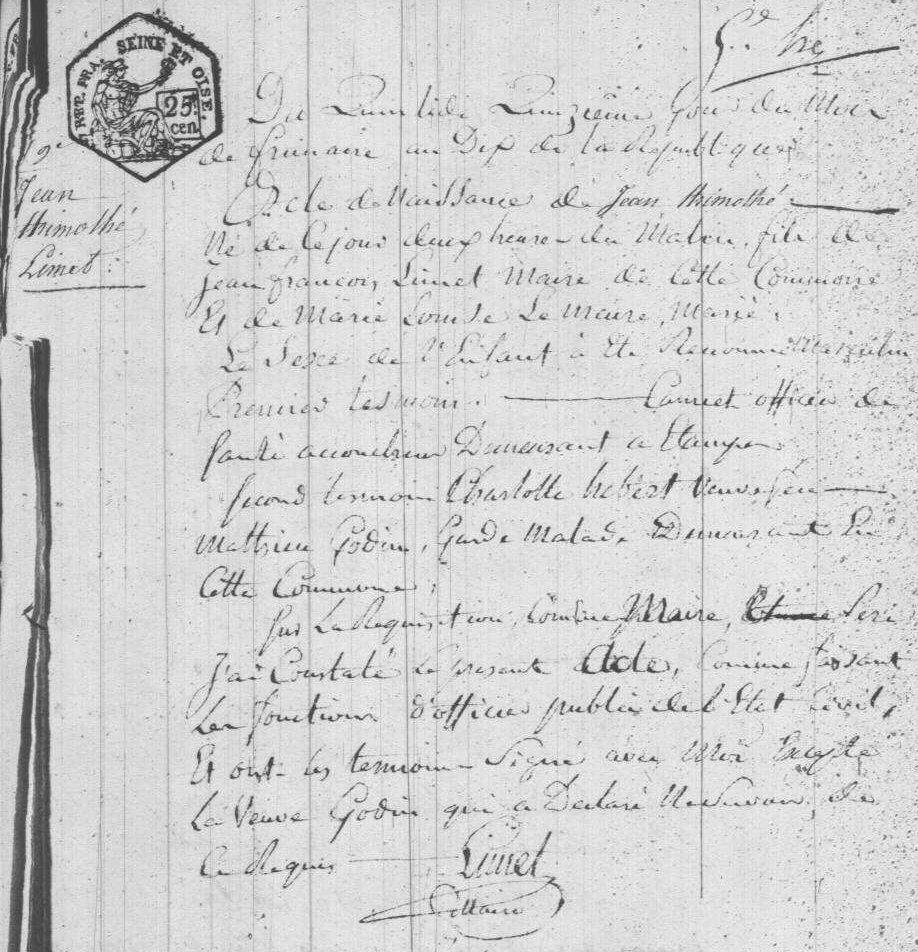 REP. FRA. SEINE ET OISE.
25 cen
9e
Jean
thimothé
Limet
Du Jour du Mois
de frimaire an Dix de la Republique
Acte de Naissance de Jean thimothé
Né de ce jour deux heures du Matin, fils de
Jean françois Limet Maire de Cette Commune
Et de Marie Louise Le Maire, Marié,
Le Sexe de l'Enfant à Eté Reconnu Masculin
Premier tesmoin officier de
Santé accoucheur Demeurant a Etampes
Second tesmoin Charlotte hebert veuve feu
Mathieu Godin, Garde Malade Demeurant En
Cette Commune,
Sur La Requisition, Comme Maire,
J'ai Constaté Le present Acte, Comme faisant
Les fonctions d'officier public de l'Etat Civil,
Et ont les temoins Signé avec Moi Excepte
La Veuve Godin qui a Declaré Ne Savoir, de
Ce Requis Limet